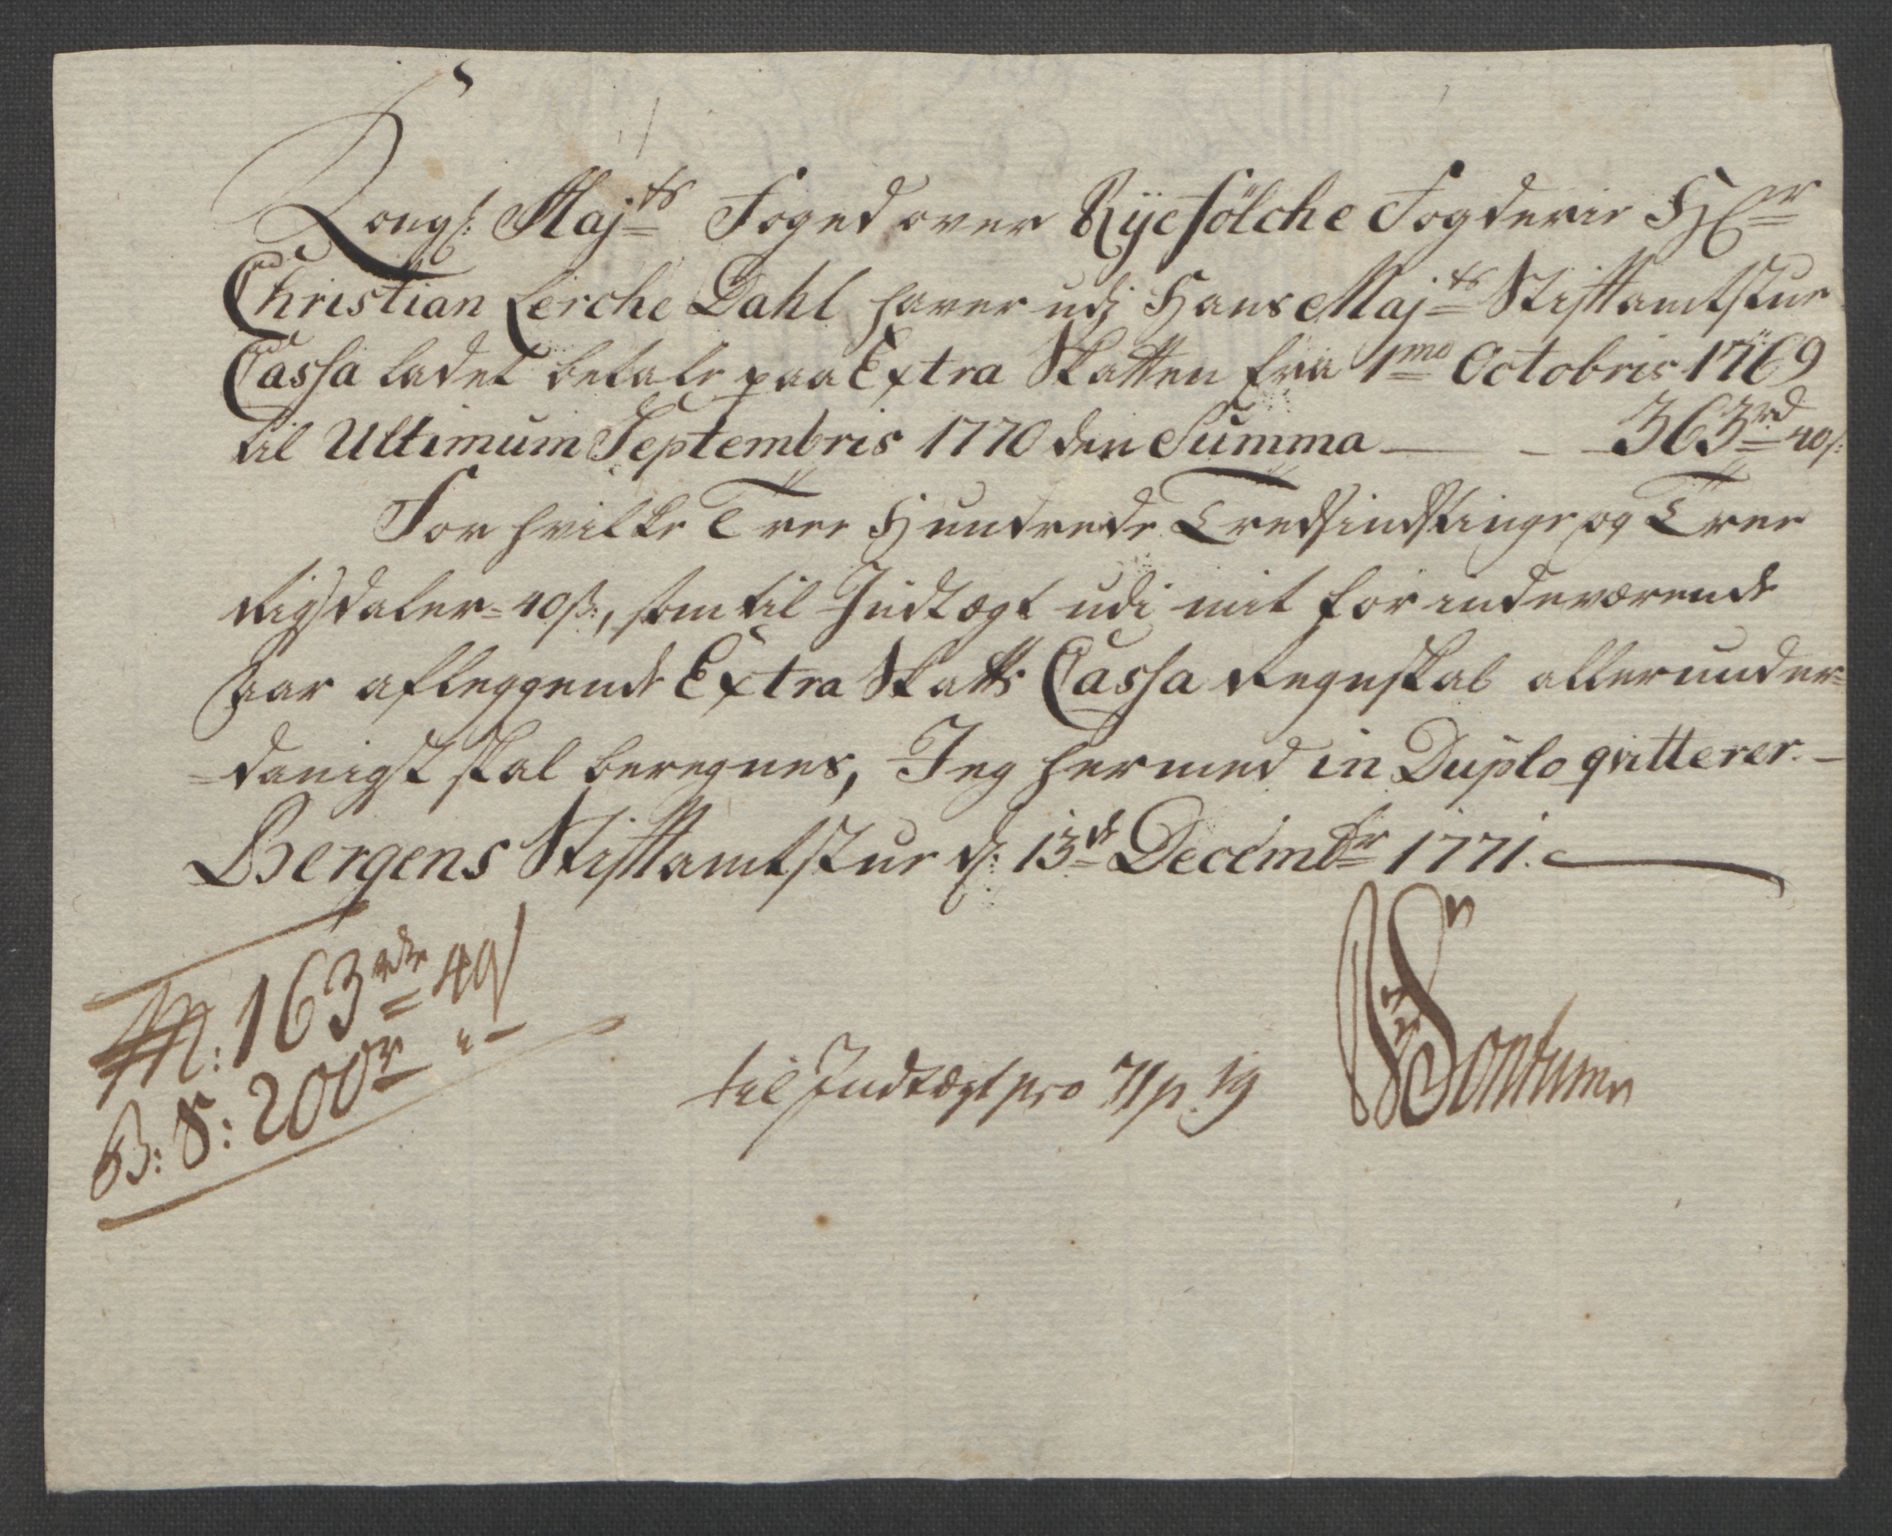 Kongl: Maj.ts Foged over Ryefölche Fogderie H.r
Christian Lerche Dahl haver udj Hans Maj.ts Stiftamtstue
Cassa ladet betale paa Extra Skatten fra 1.mo Octobris 1769
til Ultimum Septembris 1770 den Summa — - — 363 rd 40 s:
For hvilke Tree Hundrede Tredsindstinge og Tree
Rigsdaler - 40 s:, som til Indtægt udi mit for indeværende
Aar aflæggende Extra Skatts Cassa Regnskab allerunder-
-danigst skal beregnes, Jeg hermed in Duplo qvitterer. —
Bergens Stiftamtstue d: 13de Decembr 1771.
M: 163 rdr 40 s
B: S: 200 r " -
til Indtægt pro 71 p. 19
Sontum